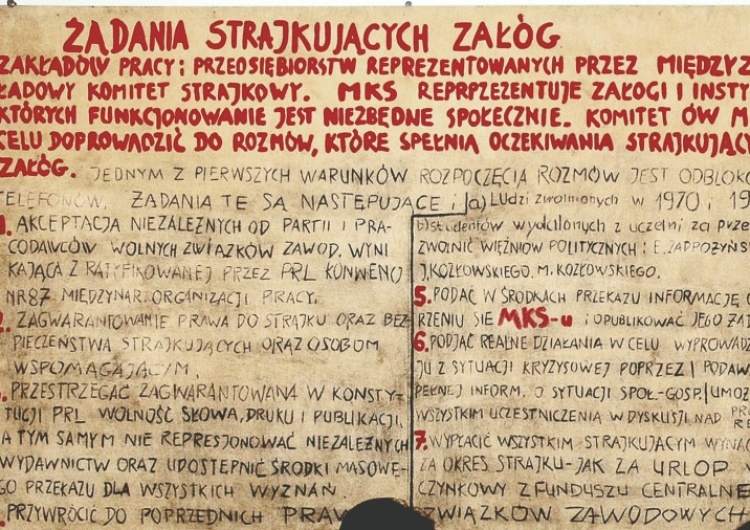 ŻĄDANIA STRAJKUJĄCYCH ZAŁÓG
ZAKŁADÓW PRACY i PRZEDSIĘBIORSTW REPREZENTOWANYCH PRZEZ MIĘDZYZ
ŁADOWY KOMITET STRAJKOWY. MKS REPRPZEZENTUJE ZAŁOGI I INSTY
KTÓRYCH FUNKCJONOWANIE JEST NIEZBĘDNE SPOŁECZNIE. KOMITET ÓW M
CELU DOPROWADZIĆ DO ROZMÓW, KTÓRE SPEŁNIĄ OCZEKIWANIA STRAJKUJĄC
ZAŁÓG. JEDNYM Z PIERWSZYCH WARUNKÓW ROZPOCZĘCIA ROZMÓW JEST ODBLOKO
TELEFONÓW. ŻĄDANIA TE SĄ NASTĘPUJĄCE:
1. AKCEPTACJA NIEZALEŻNYCH OD PARTII I PRA-
CODAWCÓW WOLNYCH ZWIĄZKÓW ZAWOD. WYNI
KAJĄCA Z RATYFIKOWANEJ PRZEZ PRL KONWENCJ
NR87 MIĘDZYNAR. ORGANIZACJI PRACY.
2. ZAGWARANTOWANIE PRAWA DO STRAJKU ORAZ BEZ-
PIECZEŃSTWA STRAJKUJĄCYCH ORAZ OSOBOM
WSPOMAGAJĄCYM.
PRZESTRZEGAĆ ZAGWARANTOWANĄ W KONSTY-
TUCJI PRL WOLNOŚĆ SŁOWA, DRUKU I PUBLIKACJI,
A TYM SAMYM NIE REPRESJONOWAĆ NIEZALEŻNYCH
WYDAWNICTW ORAZ UDOSTĘPNIĆ ŚRODKI MASOWE-
GO PRZEKAZU DLA WSZYSTKICH WYZNAŃ.
PRZYWRÓCIĆ DO POPRZEDNICH PRAW
a) Ludzi zwolnionych w 1970 i 19
b) studentów wydalonych z uczelni za prze
ZWOLNIĆ WIĘŹNIÓW POLITYCZNYCH: E. ZADROŻYŃS
J. KOZŁOWSKIEGO. M. KOZŁOWSKIEGO.
5. PODAĆ W ŚRODKACH PRZEKAZU INFORMACJĘ O
RZENIU SIĘ MKS-u i OPUBLIKOWAĆ JEGO ŻĄT
6. PODJĄĆ REALNE DZIAŁANIA W CELU WYPROWADZ
JU Z SYTUACJI KRYZYSOWEJ POPRZEZ PODAW
PEŁNEJ INFORM. O SYTUACJI SPOŁ-GOSP. UMOŻ
WSZYSTKIM UCZESTNICZENIA W DYSKUSJI NAD PR
RE
7. WYPŁACIĆ WSZYSTKIM STRAJKUJĄCYM WYNAG
ZA OKRES STRAJKU-JAK ZA URLOP W
CZYNKOWY Z FUNDUSZU CENTRALNE
ZWIĄZKÓW ZAWODOWYCH